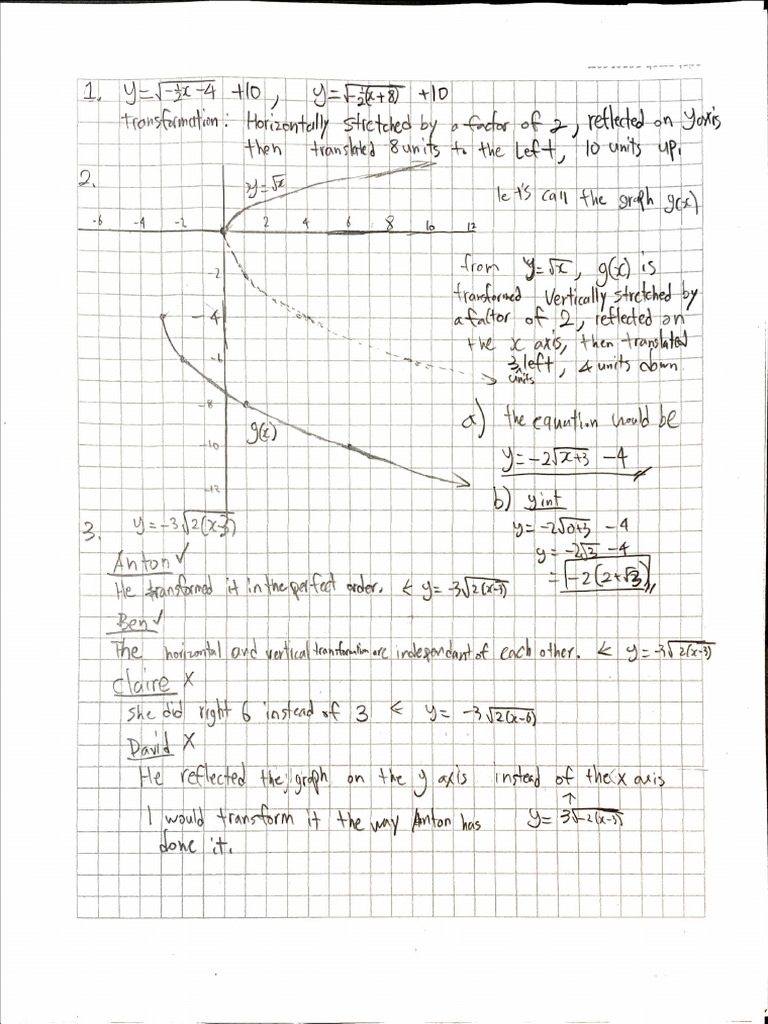 1. y=√-½x-4 +10 , y=√-½(x+8) +10
transformation: Horizontally stretched by a factor of 2, reflected on y axis
then translated 8 units to the left, 10 units up.
2.
y=√x
let's call the graph g(x)
-6 -4 -2 2 4 6 8 10 12
from y=√x, g(x) is
transformed vertically stretched by
a factor of 2, reflected on
the x axis, then translated
3 units left, 4 units down.
-2
-4
-6
-8
-10
-12
g(x)
a) the equation would be
y=-2√x+3 -4
b) y int
y=-2√0+3 -4
y=-2√3 -4
= -2(2+√3)
3. y=-3√2(x-3)
Anton ✓
He transformed it in the perfect order. < y=-3√2(x-3)
Ben ✓
The horizontal and vertical transformation are independant of each other. < y=-3√2(x-3)
Claire X
She did right 6 instead of 3 < y= -3√2(x-6)
David X
He reflected the graph on the y axis instead of the x axis
↑
I would transform it the way Anton has y= 3√-2(x-3)
done it.